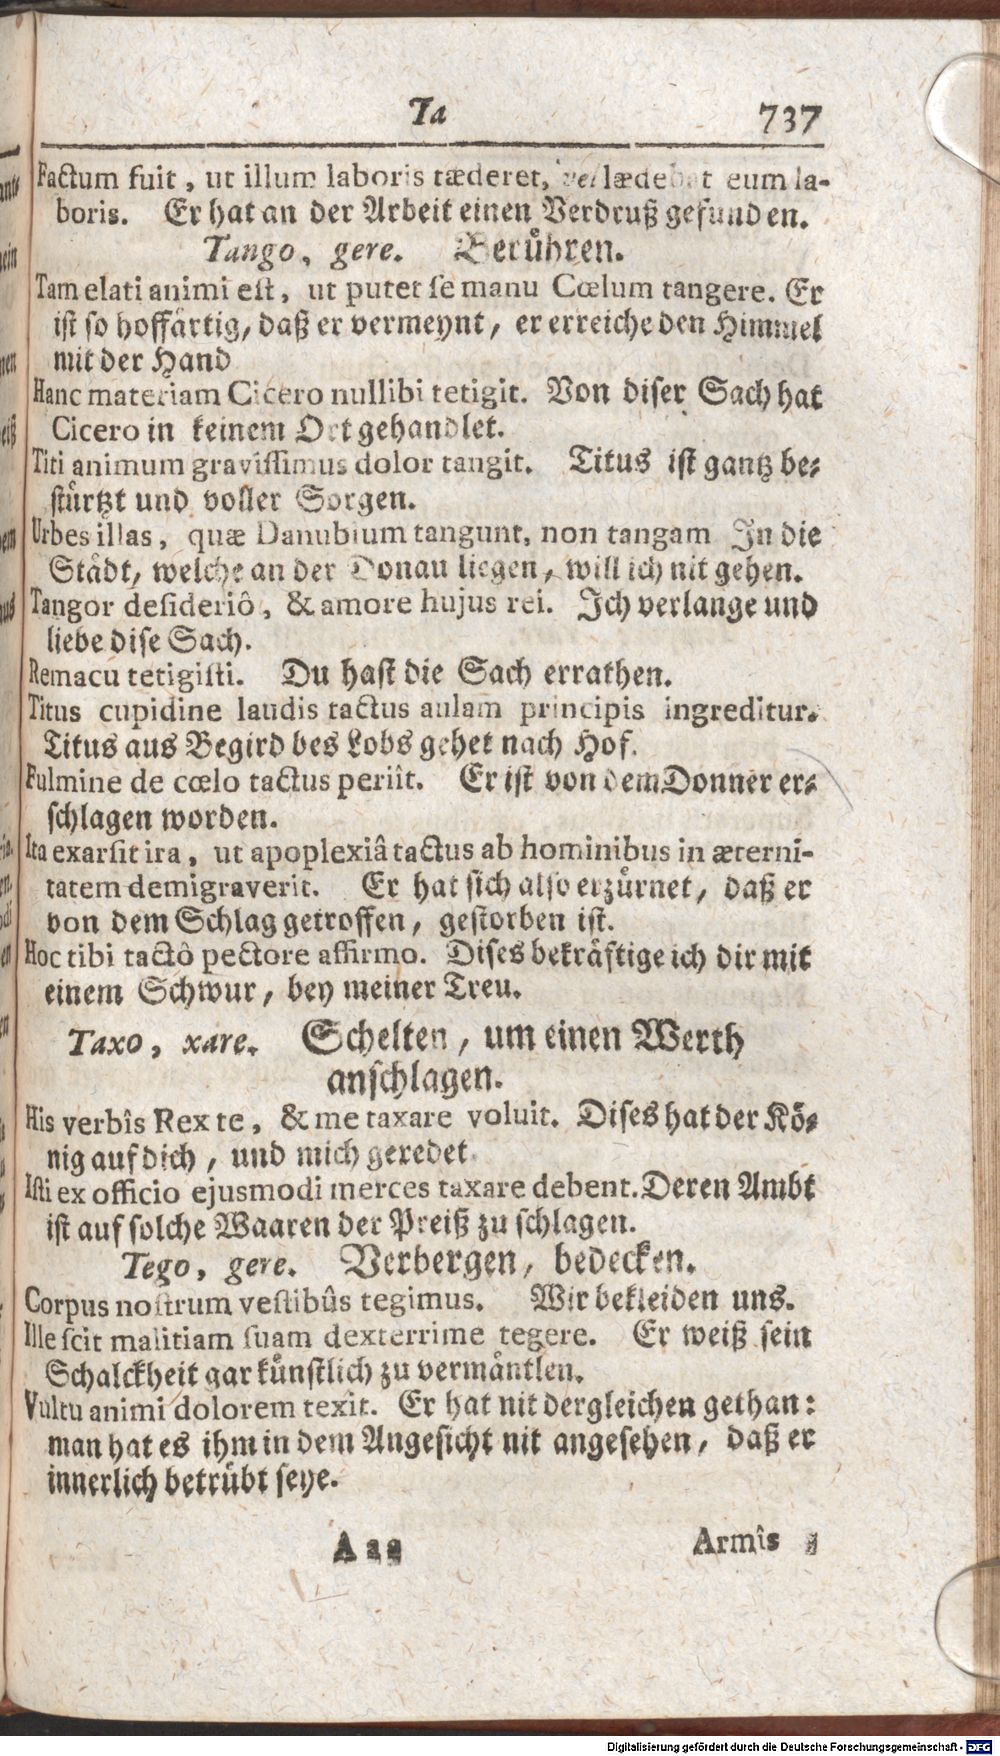 Ta 737
Factum fuit, ut illum laboris tæderet, vel lædebat eum la-
boris. Er hat an der Arbeit einen Verdruß gefunden.
Tango, gere. Berühren.
Tam elati animi est, ut putet se manu Cœlum tangere. Er
ist so hoffärtig, daß er vermeynt, er erreiche den Himmel
mit der Hand
Hanc materiam Cicero nullibi tetigit. Von diser Sach hat
Cicero in keinem Ort gehandlet.
Titi animum gravissimus dolor tangit. Titus ist gantz be-
stürtzt und voller Sorgen.
Urbes illas, quæ Danubium tangunt, non tangam In die
Städt, welche an der Donau liegen, will ich nit gehen.
Tangor desideriô, & amore hujus rei. Ich verlange und
liebe dise Sach.
Rem acu tetigisti. Du hast die Sach errathen.
Titus cupidine laudis tactus aulam principis ingreditur.
Titus aus Begird bes Lobs gehet nach Hof.
Fulmine de cœlo tactus periît. Er ist von dem Donner er-
schlagen worden.
Ita exarsit ira, ut apoplexiâ tactus ab hominibus in æterni-
tatem demigraverit. Er hat sich also erzürnet, daß er
von dem Schlag getroffen, gestorben ist.
Hoc tibi tactô pectore affirmo. Dises bekräftige ich dir mit
einem Schwur, bey meiner Treu.
Taxo, xare. Schelten, um einen Werth
anschlagen.
His verbîs Rex te, & me taxare voluit. Dises hat der Kö-
nig auf dich, und mich geredet.
Isti ex officio ejusmodi merces taxare debent. Deren Ambt
ist auf solche Waaren der Preiß zu schlagen.
Tego, gere. Verbergen, bedecken.
Corpus nostrum vestibûs tegimus. Wir bekleiden uns.
Ille scit malitiam suam dexterrime tegere. Er weiß sein
Schalckheit gar künstlich zu vermäntlen.
Vultu animi dolorem texit. Er hat nit dergleichen gethan:
man hat es ihm in dem Angesicht nit angesehen, daß er
innerlich betrübt seye.
Aaa Armîs
Digitalisierung gefördert durch die Deutsche Forschungsgemeinschaft - DFG